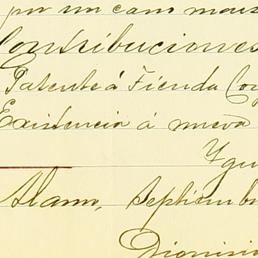 por un cam mas
Contribuciones
Patente á Tienda Con
Existencia á nueva
Ygu
Alamo, Septiemb
Dionisi